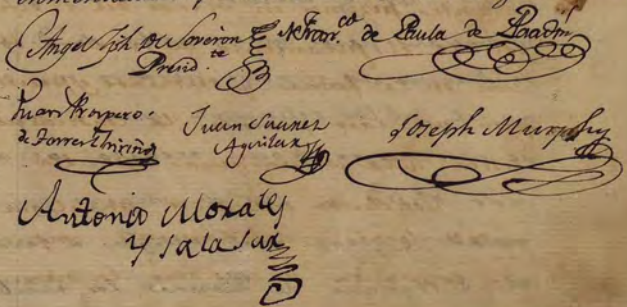 Angel Jph de Soveron
Presid.te
Fran.co de Paula de
Juan Prospero
de Torres Chirino
Juan Suarez
Aguilar
Joseph Murphy
Antonio Morales
y Salasar